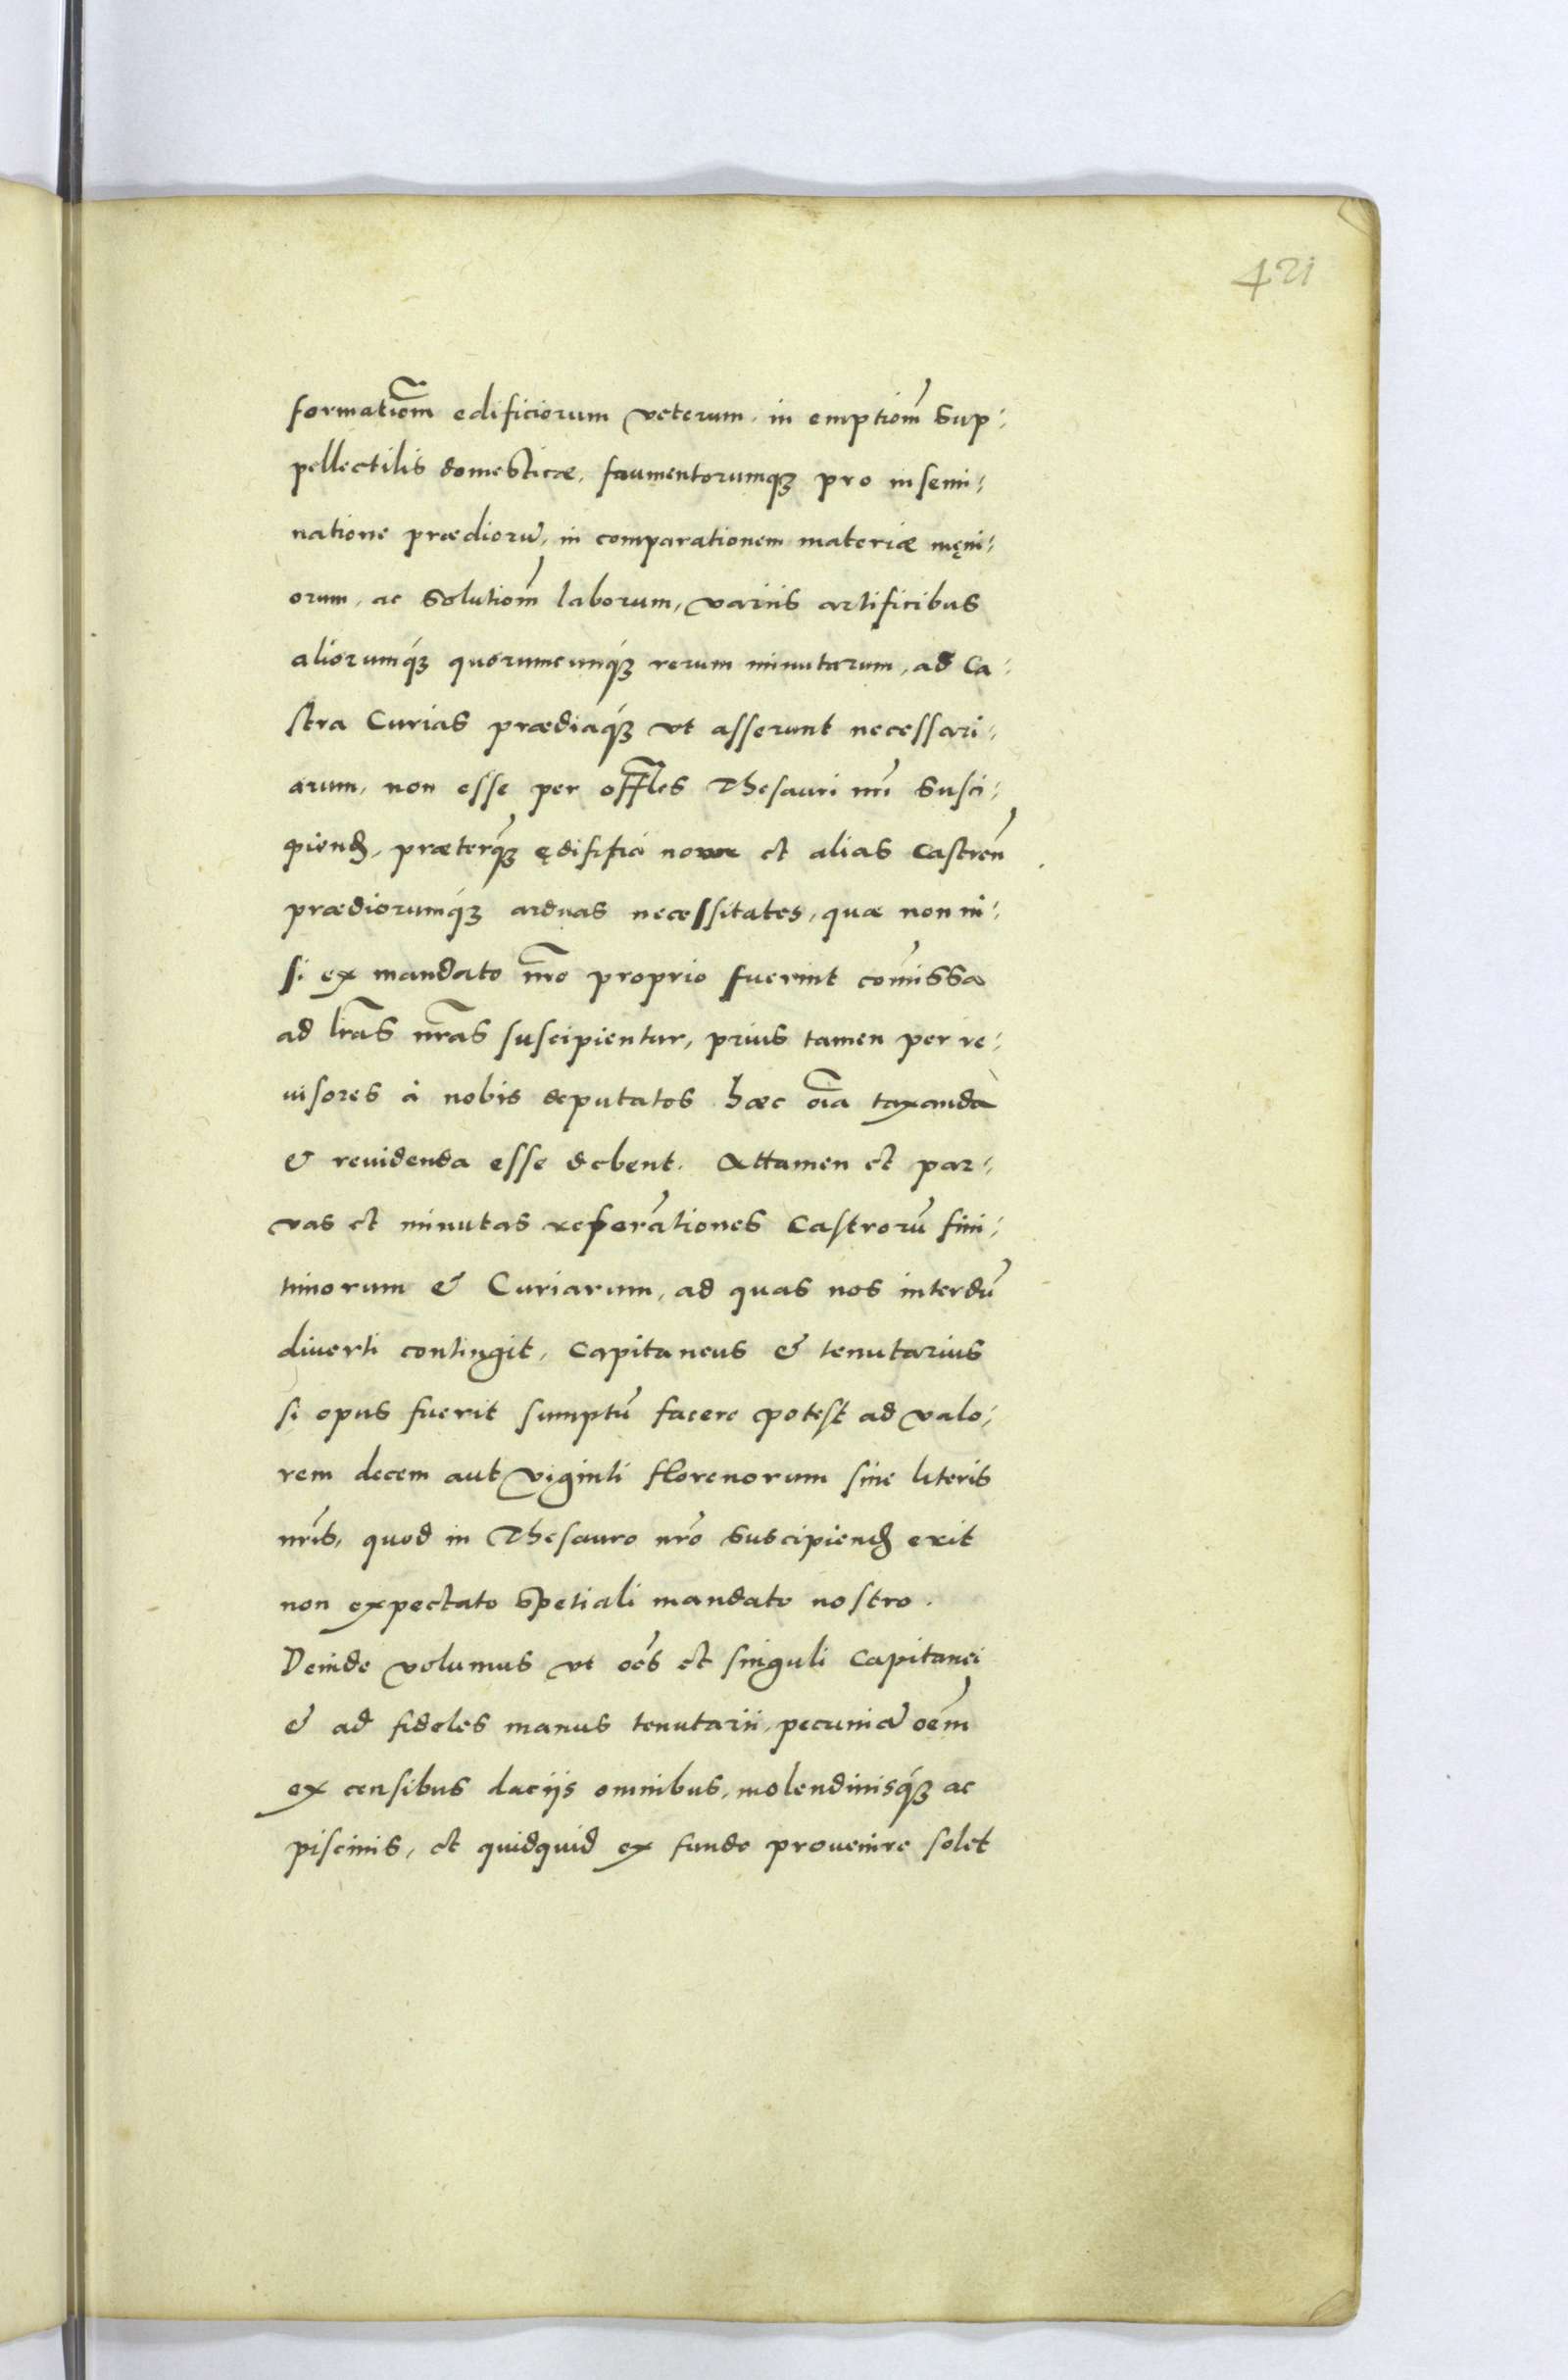 421
formatiõm edificiorum veterum, in emptiom̃ sup⸗
pellectilis domesticæ, faumentorumqꝫ pro insemi⸗
natione prædiorũ, in comparationem materiæ męni⸗
orum, ac solutiom̃ laborum, variis artificibus
aliorumqꝫ́ quorumcumqꝫ́ rerum minutarum, ad Ca⸗
stra Curias prædiaqꝫ́ vt asserunt necessari⸗
arum, non esse per offl̃es Thesauri nr̃i susci⸗
piend̛, præterqꝫ̃ ędifitia nova et alias castren̄
prædiorumqꝫ́ arduas necessitates, quæ non ni⸗
si ex mandato nr̃o proprio fuerint com̃issa
ad lr̃as nr̃as suscipientur, prius tamen per re⸗
uisores à nobis deputatos hæc oĩa taxanda
& reuidenda esse debent. Attamen et par⸗
vas et minutas reperãtiones Castrorũ fini⸗
timorum & Curiarum, ad quas nos interdũ
diverti contingit, Capitaneus & tenutarius
si opus fuerit sumptũ facere potest ad valo⸗
rem decem aut viginti florenorum sine literis
nr̃is, quod in Thesauro nr̃o suscipiend̛ erit
non expectato spetiali mandato nostro.
Deinde volumus vt oẽs et singuli Capitanei
& ad fideles manus tenutarii, pecuniã oẽm
ex censibus daciis omnibus, molendinisqꝫ́ ac
piscinis, et quidquid ex fundo prouenire solet